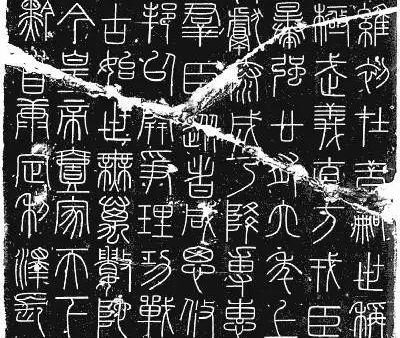 維初在昔嗣世稱
極武義直方戎臣
暴強廿有六年上
獻泰成乃降專惠
羣臣從者咸思攸
邦以開爭理功戰
古始世無萬數陀
今皇帝壹家天下
黔首康定利澤長